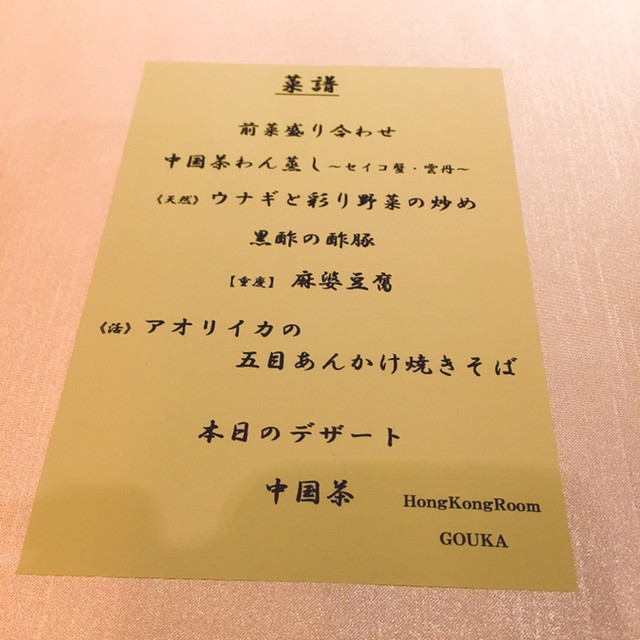 菜譜
前菜盛り合わせ
中国茶わん蒸し～セイコ蟹・雲丹～
《天然》ウナギと彩り野菜の炒め
黒酢の酢豚
【重慶】麻婆豆腐
《活》アオリイカの
五目あんかけ焼きそば
本日のデザート
中国茶
HongKongRoom
GOUKA